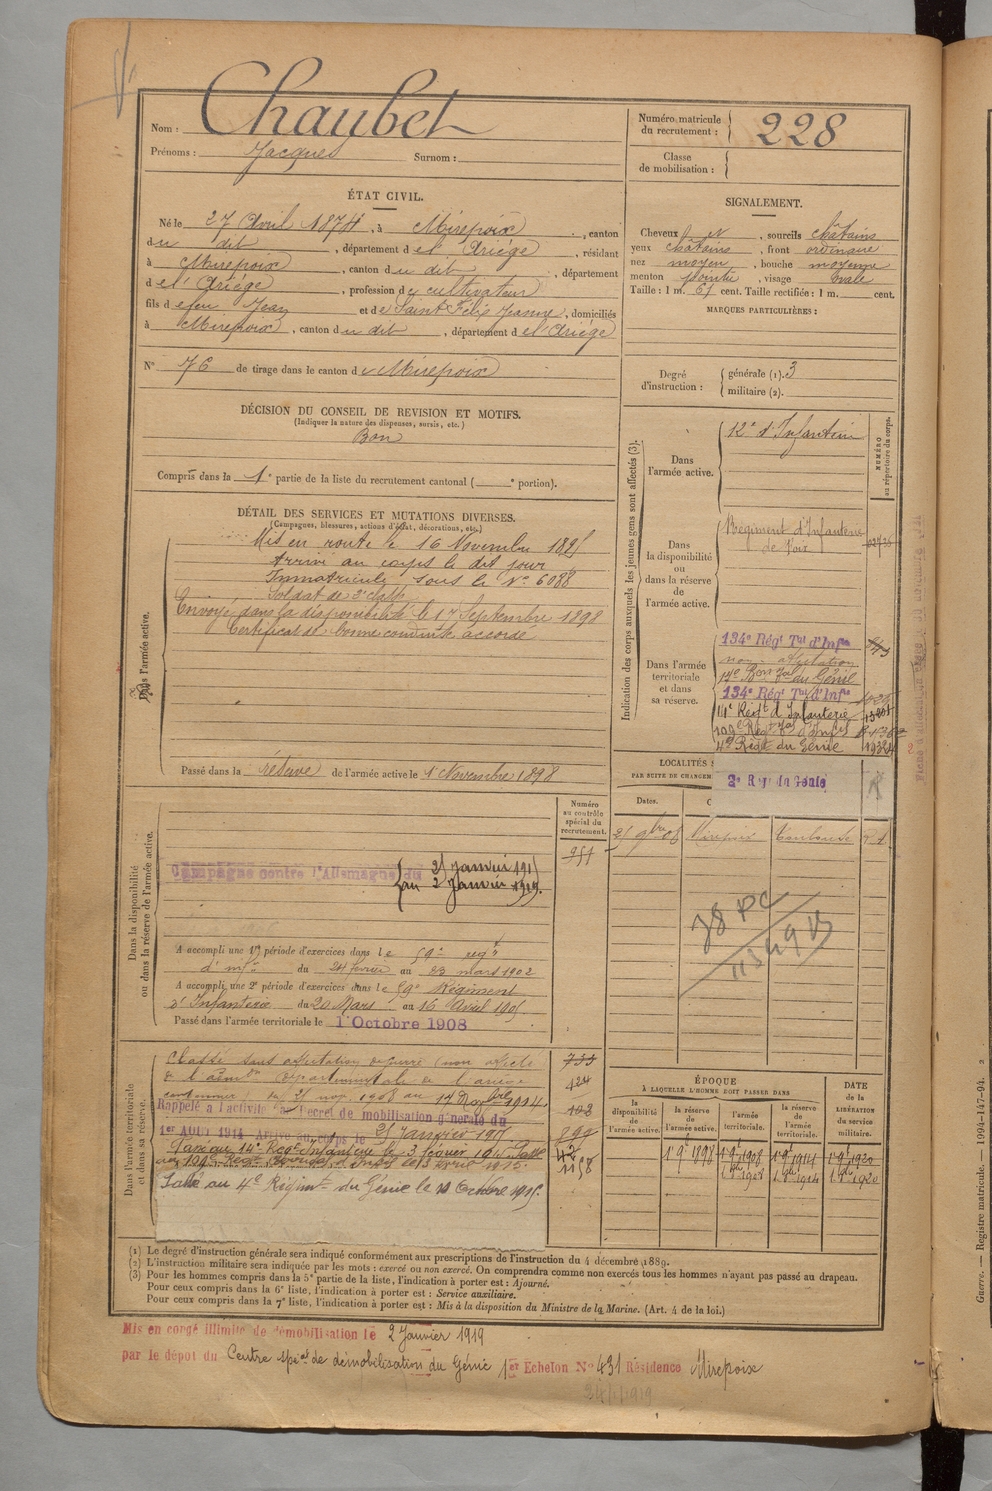 Nom : Chaubet
Prénoms : Jacques Surnom :
Numéro matricule du recrutement : 228
Classe de mobilisation :
ÉTAT CIVIL.
Né le 27 Avril 1874, à Mirepoix, canton
du dit, département de l'Ariège, résidant
à Mirepoix, canton du dit, département
de l'Ariège, profession de cultivateur
fils de feu Jean et de Saint Félix Jeanne, domiciliés
à Mirepoix, canton du dit, département de l'Ariège
N° 76 de tirage dans le canton de Mirepoix
SIGNALEMENT.
Cheveux et, sourcils châtains
yeux châtains, front ordinaire
nez moyen, bouche moyenne
menton pointu, visage ovale
Taille : 1 m. 61 cent. Taille rectifiée : 1 m. cent.
MARQUES PARTICULIÈRES :
Degré d'instruction : générale (1). 3
militaire (2).
DÉCISION DU CONSEIL DE REVISION ET MOTIFS.
(Indiquer la nature des dispenses, sursis, etc.)
Bon
Compris dans la 1e partie de la liste du recrutement cantonal ( e portion).
DÉTAIL DES SERVICES ET MUTATIONS DIVERSES.
(Campagnes, blessures, actions d'éclat, décorations, etc.)
Dans l'armée active.
Mis en route le 16 Novembre 1895
Arrivé au corps le dit jour
Immatriculé sous le N° 6088
Soldat de 2e classe
Envoyé dans la disponibilité le 1er Septembre 1898
Certificat de bonne conduite accordé
Passé dans la réserve de l'armée active le 1 Novembre 1898
Indication des corps auxquels les jeunes gens sont affectés (3).
NUMÉRO au répertoire du corps.
Dans l'armée active.
12e d'Infanterie
Dans la disponibilité ou dans la réserve de l'armée active.
Régiment d'Infanterie
de Foix
Dans l'armée territoriale et dans sa réserve.
134e Régt Tal d'Infie
134e Régt Tal d'Infie
14e Régt d'Infanterie
4e Régt du Génie
2e Reg du Génie
LOCALITÉS
PAR SUITE DE CHANGEM
Dates.
Mirepoix Toulouse
Numéro au contrôle spécial du recrutement.
951
Dans la disponibilité ou dans la réserve de l'armée active.
Campagne contre l'Allemagne du 25 Janvier 1915
au 2 Janvier 1919.
A accompli une 1re période d'exercices dans le 59e régt
d'infie du 24 février au 23 mars 1902
A accompli une 2e période d'exercices dans le 59e Régiment
d'Infanterie du 20 Mars au 16 Avril 1905
Passé dans l'armée territoriale le 1 Octobre 1908
Dans l'armée territoriale et dans sa réserve.
Classé sans affectation de guerre (non affecté
Rappelé à l'activité par Décret de mobilisation générale du
1er AOUT 1914 Arrivé au corps le 25 Janvier 1915
Passé au 4e Régimt du Génie le 10 Octobre 1915.
733
424
102
899
1158
78 PC
ÉPOQUE
À LAQUELLE L'HOMME DOIT PASSER DANS
la disponibilité de l'armée active.
la réserve de l'armée active.
l'armée territoriale.
la réserve de l'armée territoriale.
DATE DE LA LIBÉRATION DU SERVICE MILITAIRE.
(1) Le degré d'instruction générale sera indiqué conformément aux prescriptions de l'instruction du 4 décembre 1889.
(2) L'instruction militaire sera indiquée par les mots : exercé ou non exercé. On comprendra comme non exercés tous les hommes n'ayant pas passé au drapeau.
(3) Pour les hommes compris dans la 5e partie de la liste, l'indication à porter est : Ajourné.
Pour ceux compris dans la 6e liste, l'indication à porter est : Service auxiliaire.
Pour ceux compris dans la 7e liste, l'indication à porter est : Mis à la disposition du Ministre de la Marine. (Art. 4 de la loi.)
Mis en congé illimité de démobilisation le 2 Janvier 1919
par le dépot du Centre spéal de démobilisation du Génie 1er Echelon N° 431 Résidence Mirepoix
Guerre. — Registre matricule. — 1994-147-94. 2